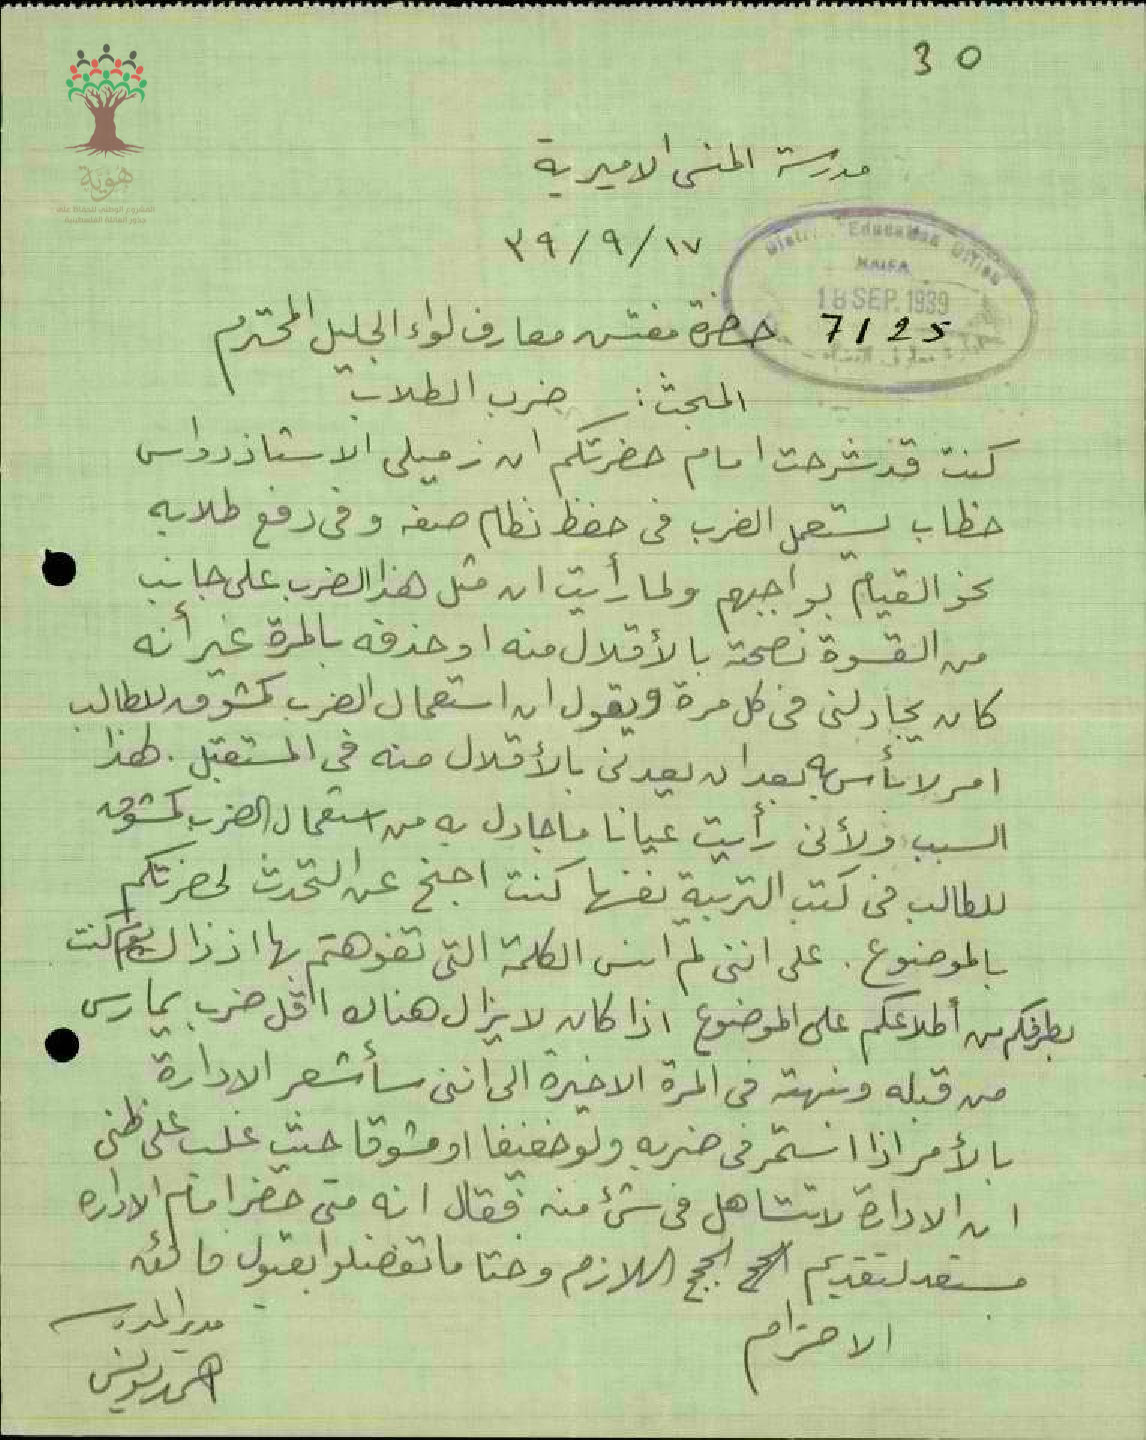 30
هوية
المشروع الوطني للحفاظ على
جذور العائلة الفلسطينية
مدرسة المنسى الاميرية
١٧/٩/٣٩
District Education Office
HAIFA
18 SEP. 1939
7125
حضرة مفتش معارف لواء الجليل المحترم
المبحث: ضرب الطلاب
كنت قد شرحت امام حضرتكم ان زميلى الاستاذ رواس
خطاب يستعمل الضرب فى حفظ نظام صفه وفى دفع طلابه
نحو القيام بواجبهم ولما رأيت ان مثل هذا الضرب على جانب
من القسوة نصحته بالأقلال منه او حذفه بالمرة غير أنه
كان يجادلنى فى كل مرة ويقول ان استعمال الضرب كمشوق للطالب
امر لا بأس به بعد ان يعدنى بالأقلال منه فى المستقبل. لهذا
السبب ولأنى رأيت عيانا ما جادل به من استعمال الضرب كمشوق
للطالب فى كتب التربية نفسها كنت اجنح عن التحدث لحضرتكم
بالموضوع. على اننى لم انس الكلمة التى تفوهتم بها اذ ذاك يوم كنت
بطرفكم من أطلاعكم على الموضوع اذا كان لا يزال هناك اقل ضرب يمارس
من قبله ونبهته فى المرة الاخيرة الى اننى سأشعر الادارة
بالأمر اذا استمر فى ضربه ولو خفيفا او مشوقا حيث غلب على ظنى
ان الادارة لا تتساهل فى شئ منه فقال انه متى حضر امام الاداره
مستعد لتقديم الحجج اللازم وختاما تفضلوا بقبول فائق
الاحترام
مدير المدرسة